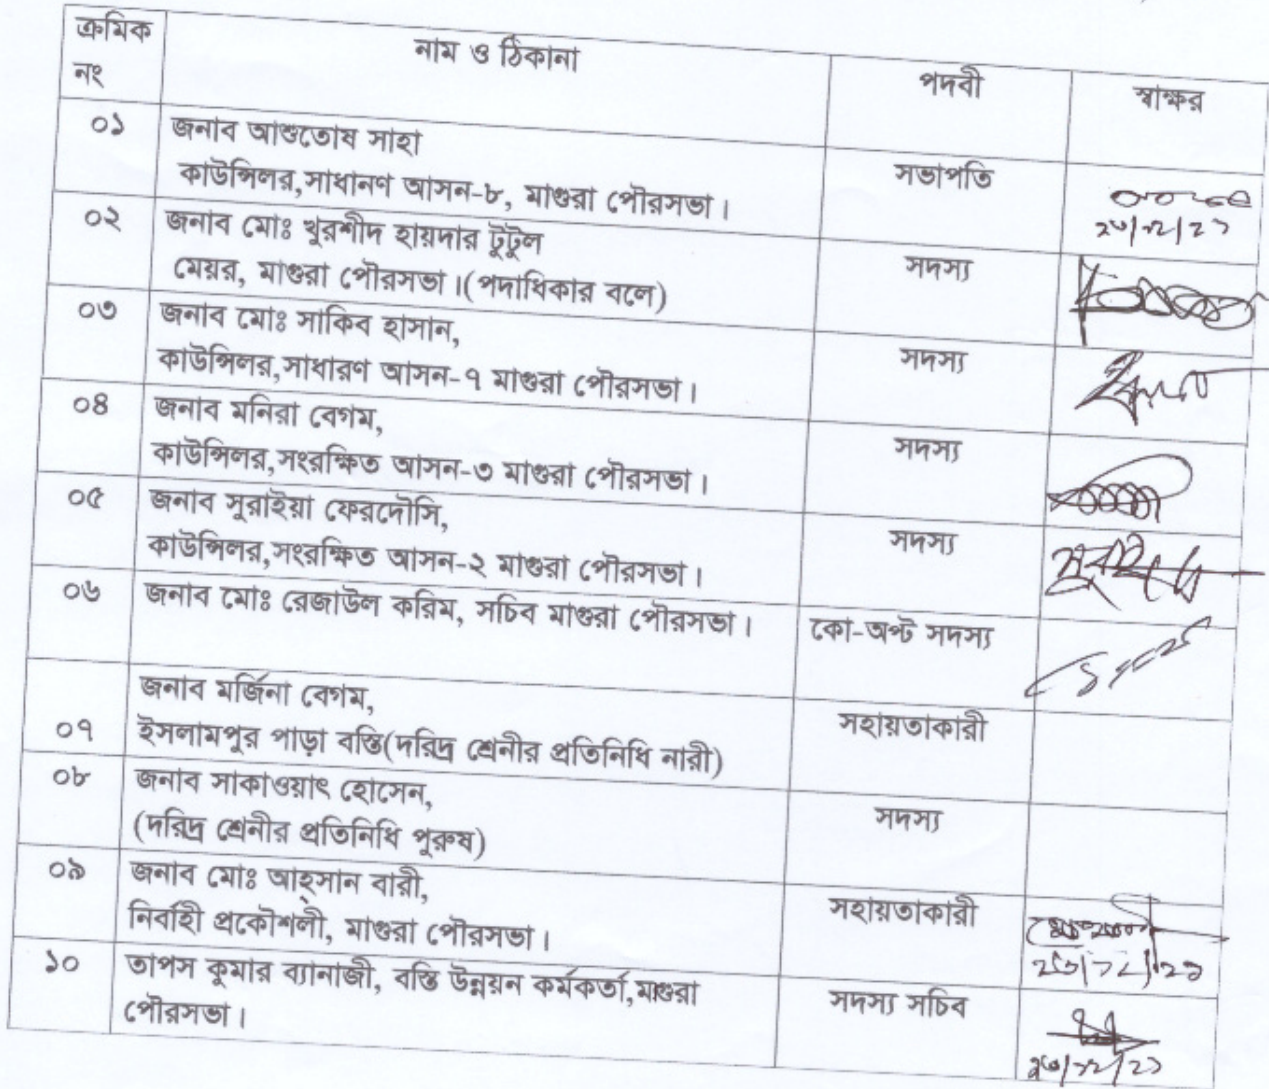 ক্রমিক নং	নাম ও ঠিকানা	পদবী	স্বাক্ষর
০১	জনাব আশুতোষ সাহা
কাউন্সিলর,সাধানণ আসন-৮, মাগুরা পৌরসভা।	সভাপতি
০২	জনাব মোঃ খুরশীদ হায়দার টুটুল
মেয়র, মাগুরা পৌরসভা।(পদাধিকার বলে)	সদস্য
০৩	জনাব মোঃ সাকিব হাসান,
কাউন্সিলর,সাধারণ আসন-৭ মাগুরা পৌরসভা।	সদস্য
০৪	জনাব মনিরা বেগম,
কাউন্সিলর,সংরক্ষিত আসন-৩ মাগুরা পৌরসভা।	সদস্য
০৫	জনাব সুরাইয়া ফেরদৌসি,
কাউন্সিলর,সংরক্ষিত আসন-২ মাগুরা পৌরসভা।	সদস্য
০৬	জনাব মোঃ রেজাউল করিম, সচিব মাগুরা পৌরসভা।	কো-অপ্ট সদস্য
০৭	জনাব মর্জিনা বেগম,
ইসলামপুর পাড়া বস্তি(দরিদ্র শ্রেনীর প্রতিনিধি নারী)	সহায়তাকারী
০৮	জনাব সাকাওয়াৎ হোসেন,
(দরিদ্র শ্রেনীর প্রতিনিধি পুরুষ)	সদস্য
০৯	জনাব মোঃ আহ্সান বারী,
নির্বাহী প্রকৌশলী, মাগুরা পৌরসভা।	সহায়তাকারী
১০	তাপস কুমার ব্যানার্জী, বস্তি উন্নয়ন কর্মকর্তা,মাগুরা
পৌরসভা।	সদস্য সচিব